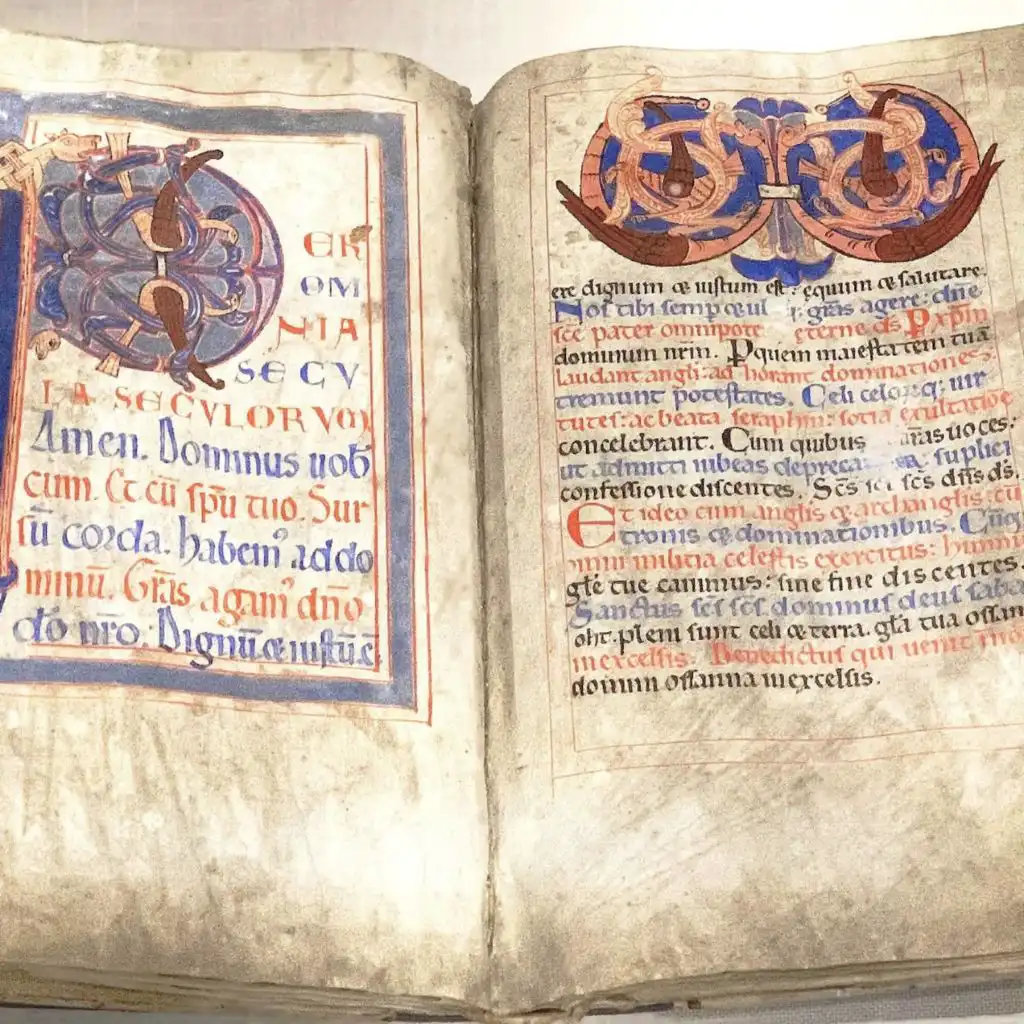 ER
OM
NIA
SECV
LA SECVLORVM
Amen. Dominus uob
cum. Et cū spū tuo. Sur
sū corda. habem' ad do
minū. Grās agam' dño
dō nrō. Dignū & iustū ē
ere dignum & iustum est: equum & salutare.
Nos tibi semp & grās agere: dñe
scē pater omnipote eterne ds. P xpm
dominum nrm. P quem maiestatem tuā
laudant angli: adhorant dominationes:
tremunt potestates. Celi celorq; uir
tutes: ac beata seraphin: sotia exultatiōe
concelebrant. Cum quibus nras uoces:
ut admitti iubeas depreca suplici
confessione discentes. Scs scs scs dns ds.
Et ideo cum anglis & archanglis: cū
tronis & dominationibus. Cūq;
omni militia celestis exercitus: himnū
glē tue canimus: sine fine discentes.
Sanctus scs scs dominus deus saba
oht. pleni sunt celi & terra. gla tua ossan
in excelsis. Benedictus qui uenit
domini ossanna in excelsis.